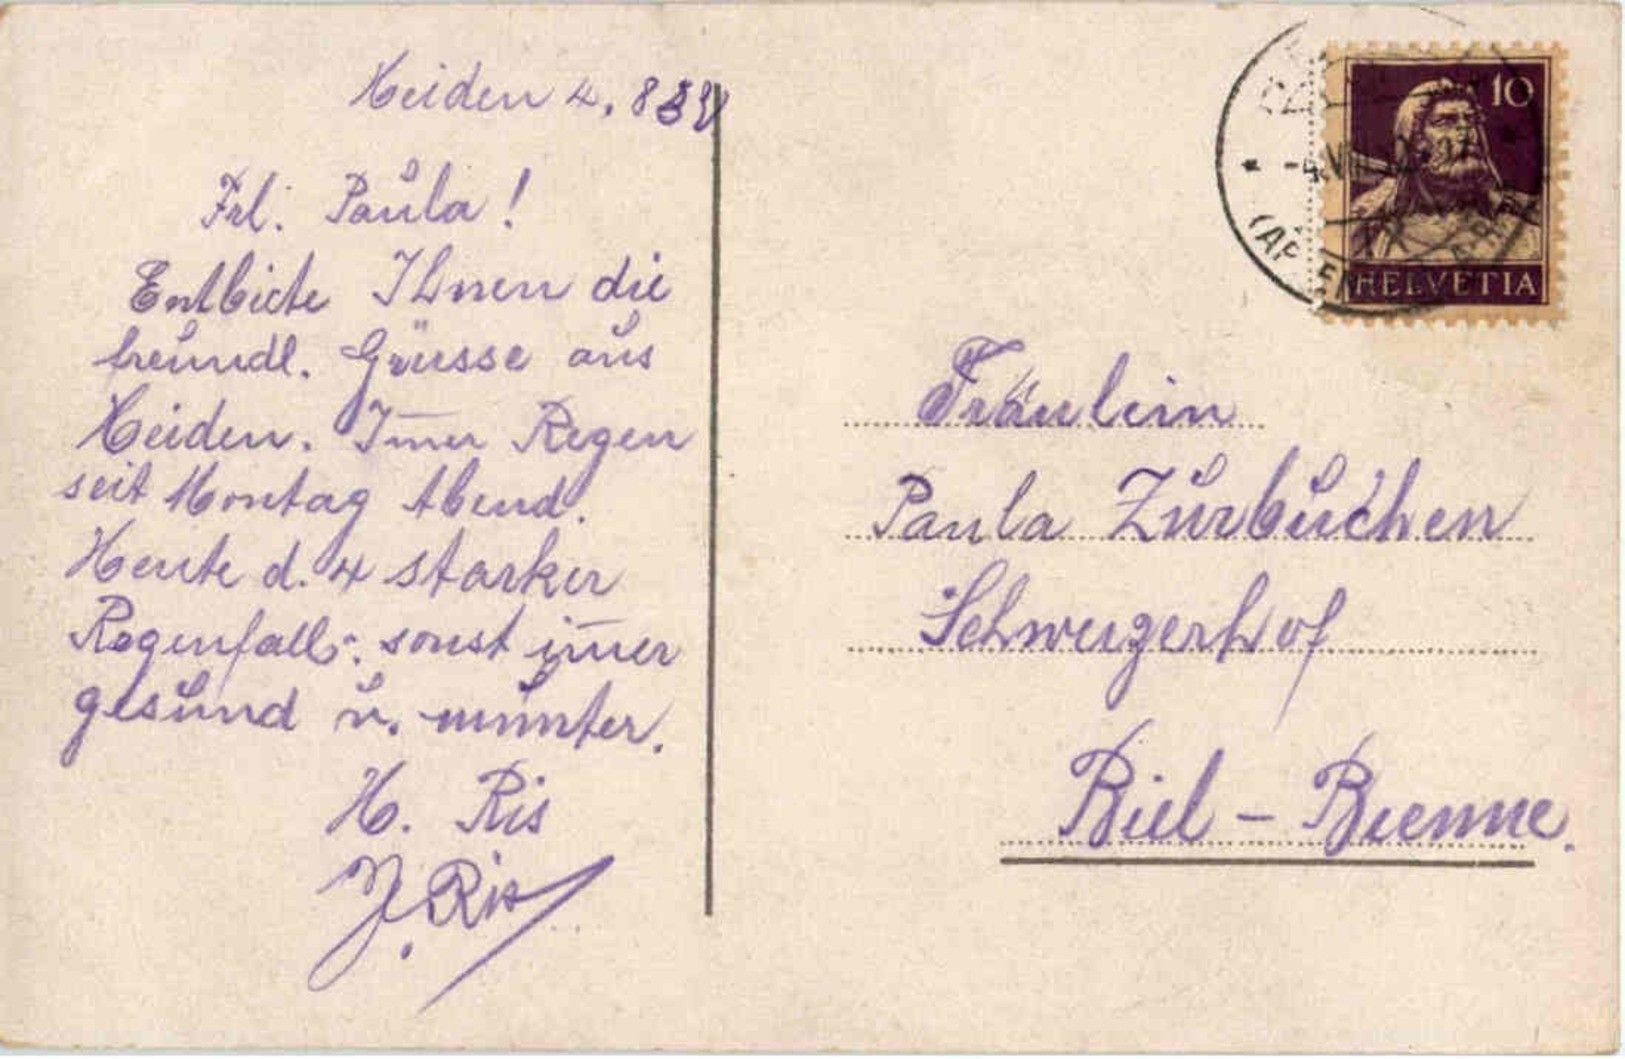 Heiden 4. 8
Frl. Paula!
Entbiete Ihnen die
freundl. Grüsse aus
Heiden. Im̅er Regen
seit Montag Abend.
Heute d. 4 starker
Regenfall; sonst im̅er
gesund u. munter.
H. Ris
J. Ris
10
HELVETIA
Fräulein
Paula Zurbuchen
Schweizerhof
Biel - Bienne.